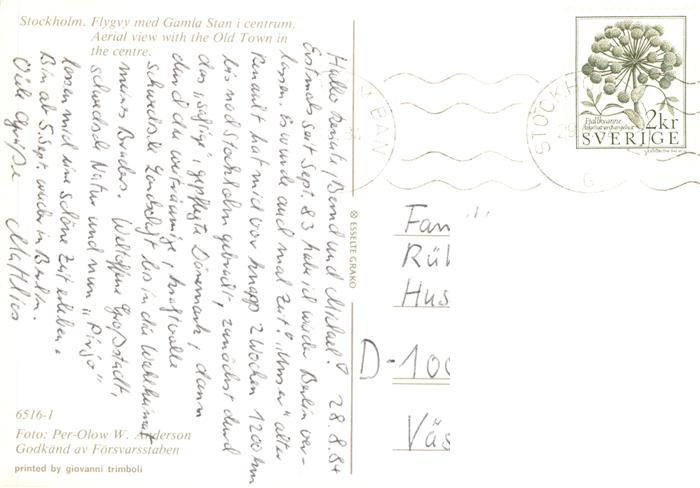 Stockholm. Flygvy med Gamla Stan i centrum.
Aerial view with the Old Town in
the centre.
Hallo Renate, Bernd und Michael! 28.8.84
Erstmals seit Sept. 83 habe ich wieder Berlin ver-
lassen. Es wurde auch mal Zeit! "Unser" alter
Renault hat mich vor knapp 2 Wochen 1200 km
bis nach Stockholm gebracht, zunächst durch
das "saftige", gepflegte Dänemark, dann
durch die weiträumige, kraftvolle
schwedische Landschaft bis in die Wahlheimat
meines Bruders. Weltoffene Großstadt,
schwed. Natur und nun "Pirjo"
lassen mich eine schöne Zeit erleben.
Bin ab 5. Sept. wieder in Berlin.
Viele Grüße Matthias
6516-1
Foto: Per-Olow W. Anderson
Godkänd av Försvarsstaben
printed by giovanni trimboli
ESSELTE GRAKO
STOCKH
BAN
G
Fjällkvanne
2kr
SVERIGE
Fam
Rül
Hus
D-100
Väs